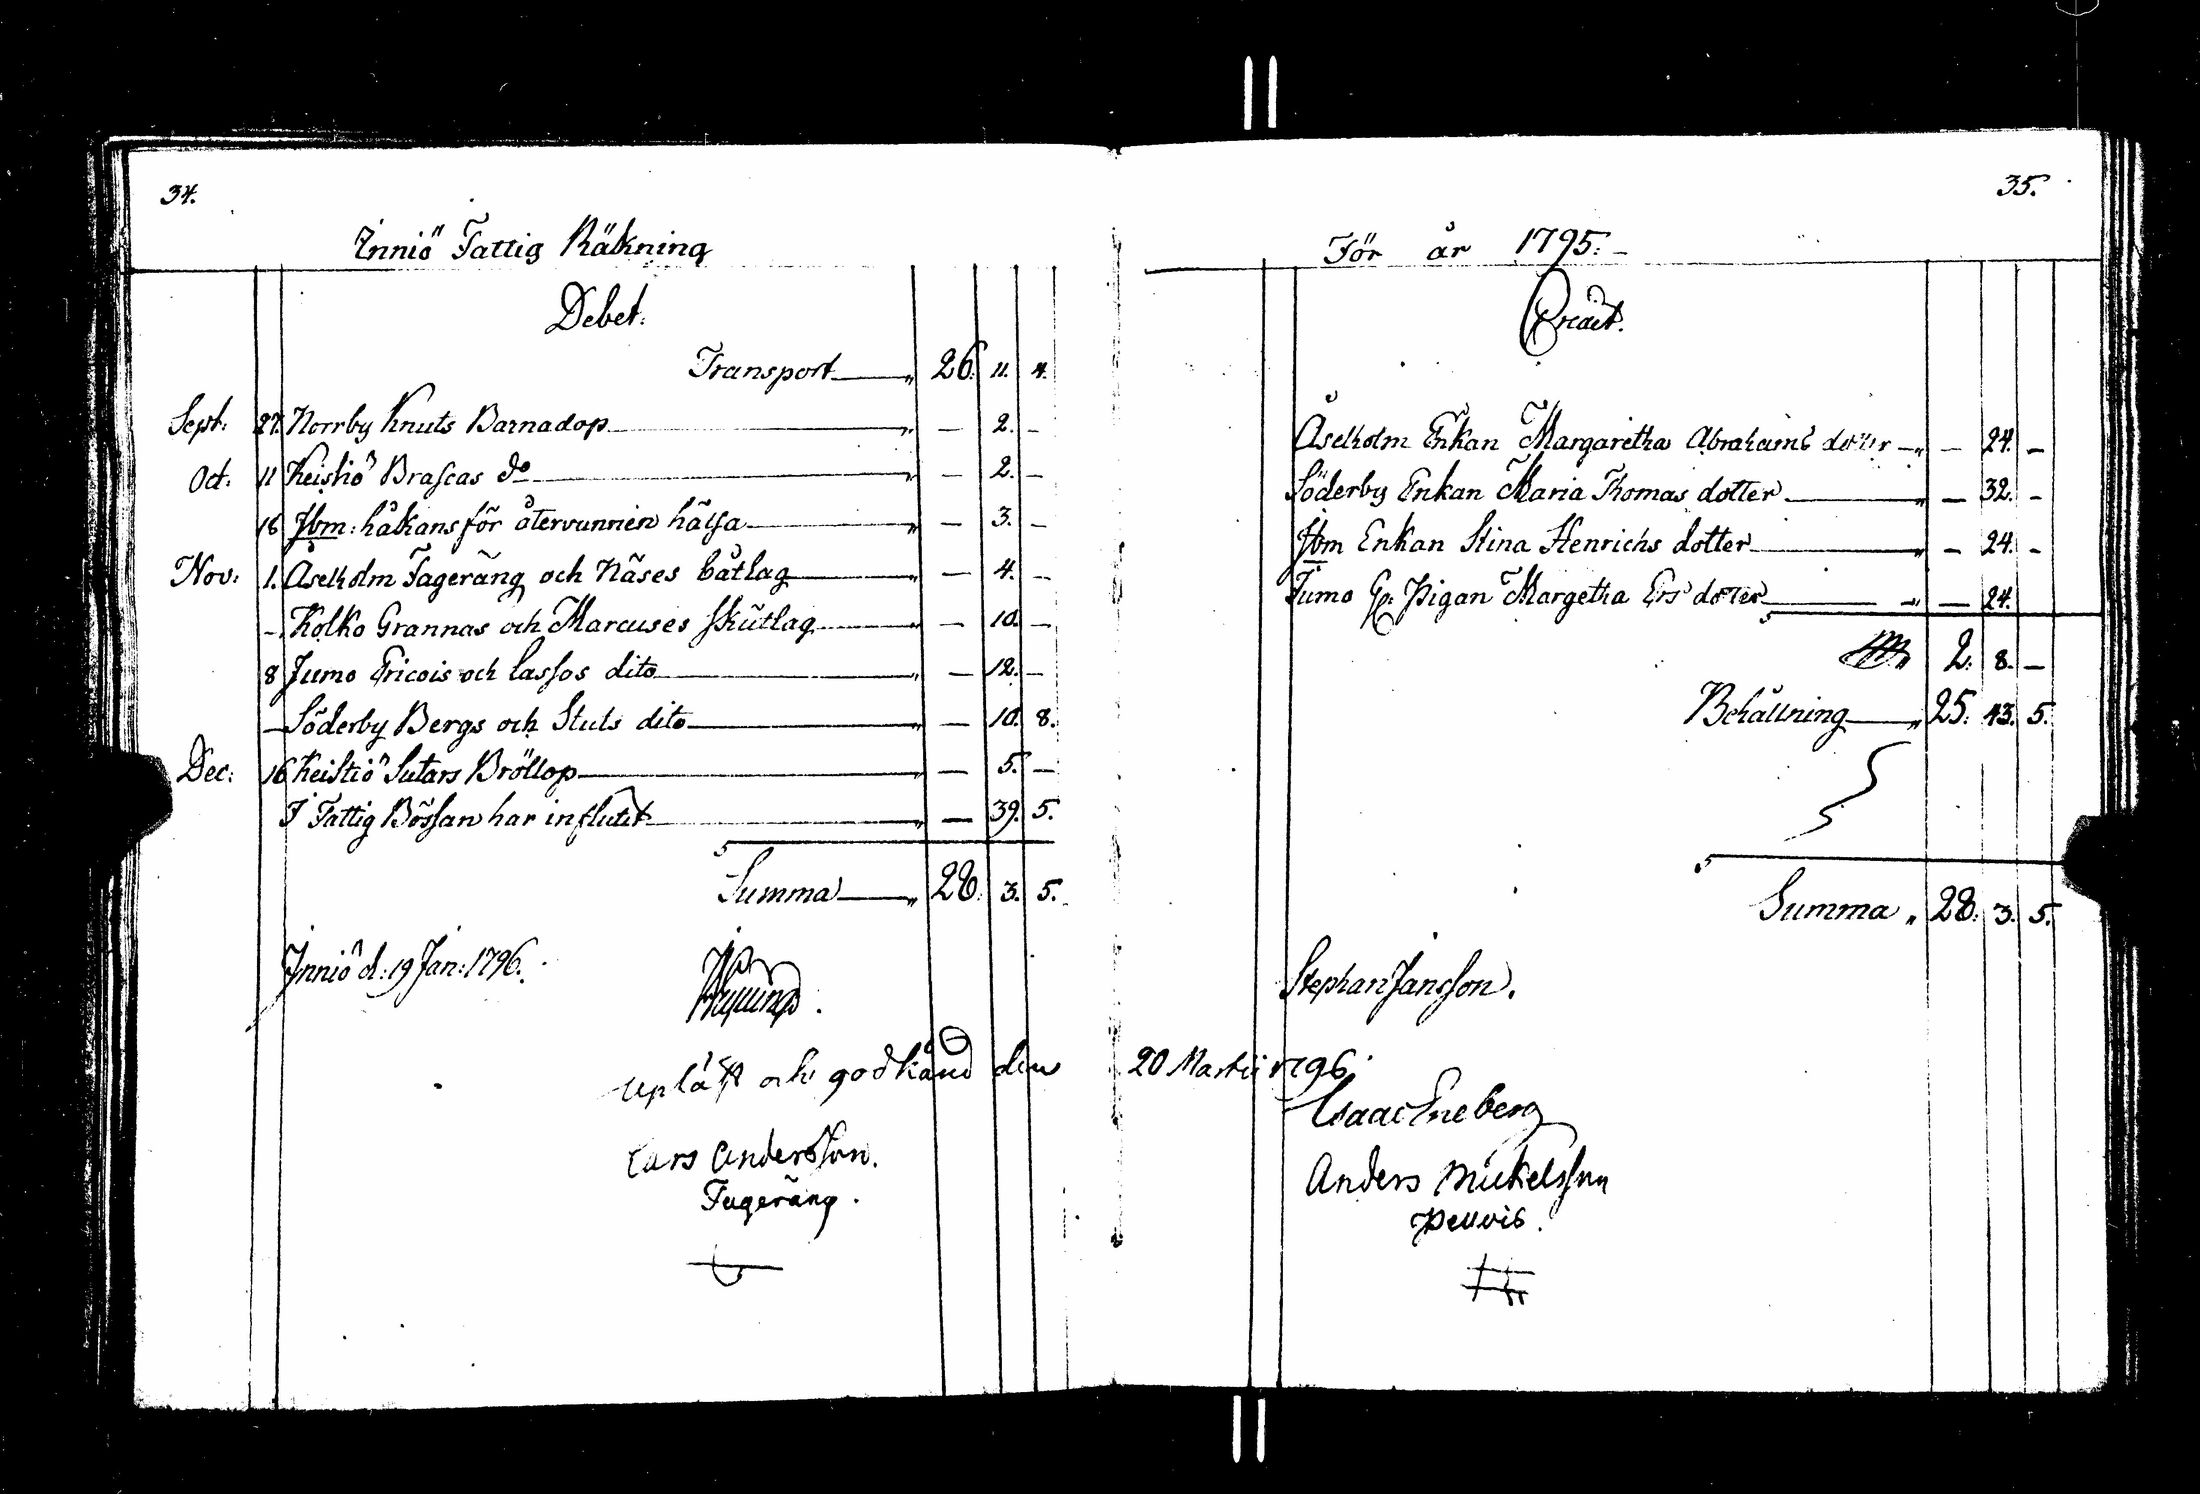 34.
Inniö Fattig Räkning
Debet.
Transport 26. 11. 4.
Sept: 27. Norrby Knuts Barnadop — 2. —
Oct: 11 Keistiö Brascas do — 2. —
18 Ibm: håkans för återvunnen hälsa — 3. —
Nov: 1. Åselholm Fageräng och Näses båtlag — 4. —
— Kolko Grannas och Marcuses skutlag — 10. —
8 Jumo Ericois och Lassos dito — 12. —
— Söderby Bergs och Stuts dito — 10. 8.
Dec: 16 Keistiö Sutars Bröllop — 5. —
I Fattig Bössan har influtit — 39. 5.
Summa 28. 3. 5.
Inniö d: 19 Jan: 1796.
upläst och godkänd den 20 Martii 1796
Lars Andersson.
Fageräng.
35.
För år 1795. —
Credit.
Åselholm Enkan Margaretha Abrahams dotter — 24. —
Söderby Enkan Maria Thomas dotter — 32. —
Ibm Enkan Stina Henrichs dotter — 24. —
Jumo Pigan Margetha Ers doter — 24.
2. 8. —
Behållning 25. 43. 5.
Summa 28. 3. 5.
Stephan Jansson.
Isaac Eneberg
Anders Mickelsson
Peuvis.